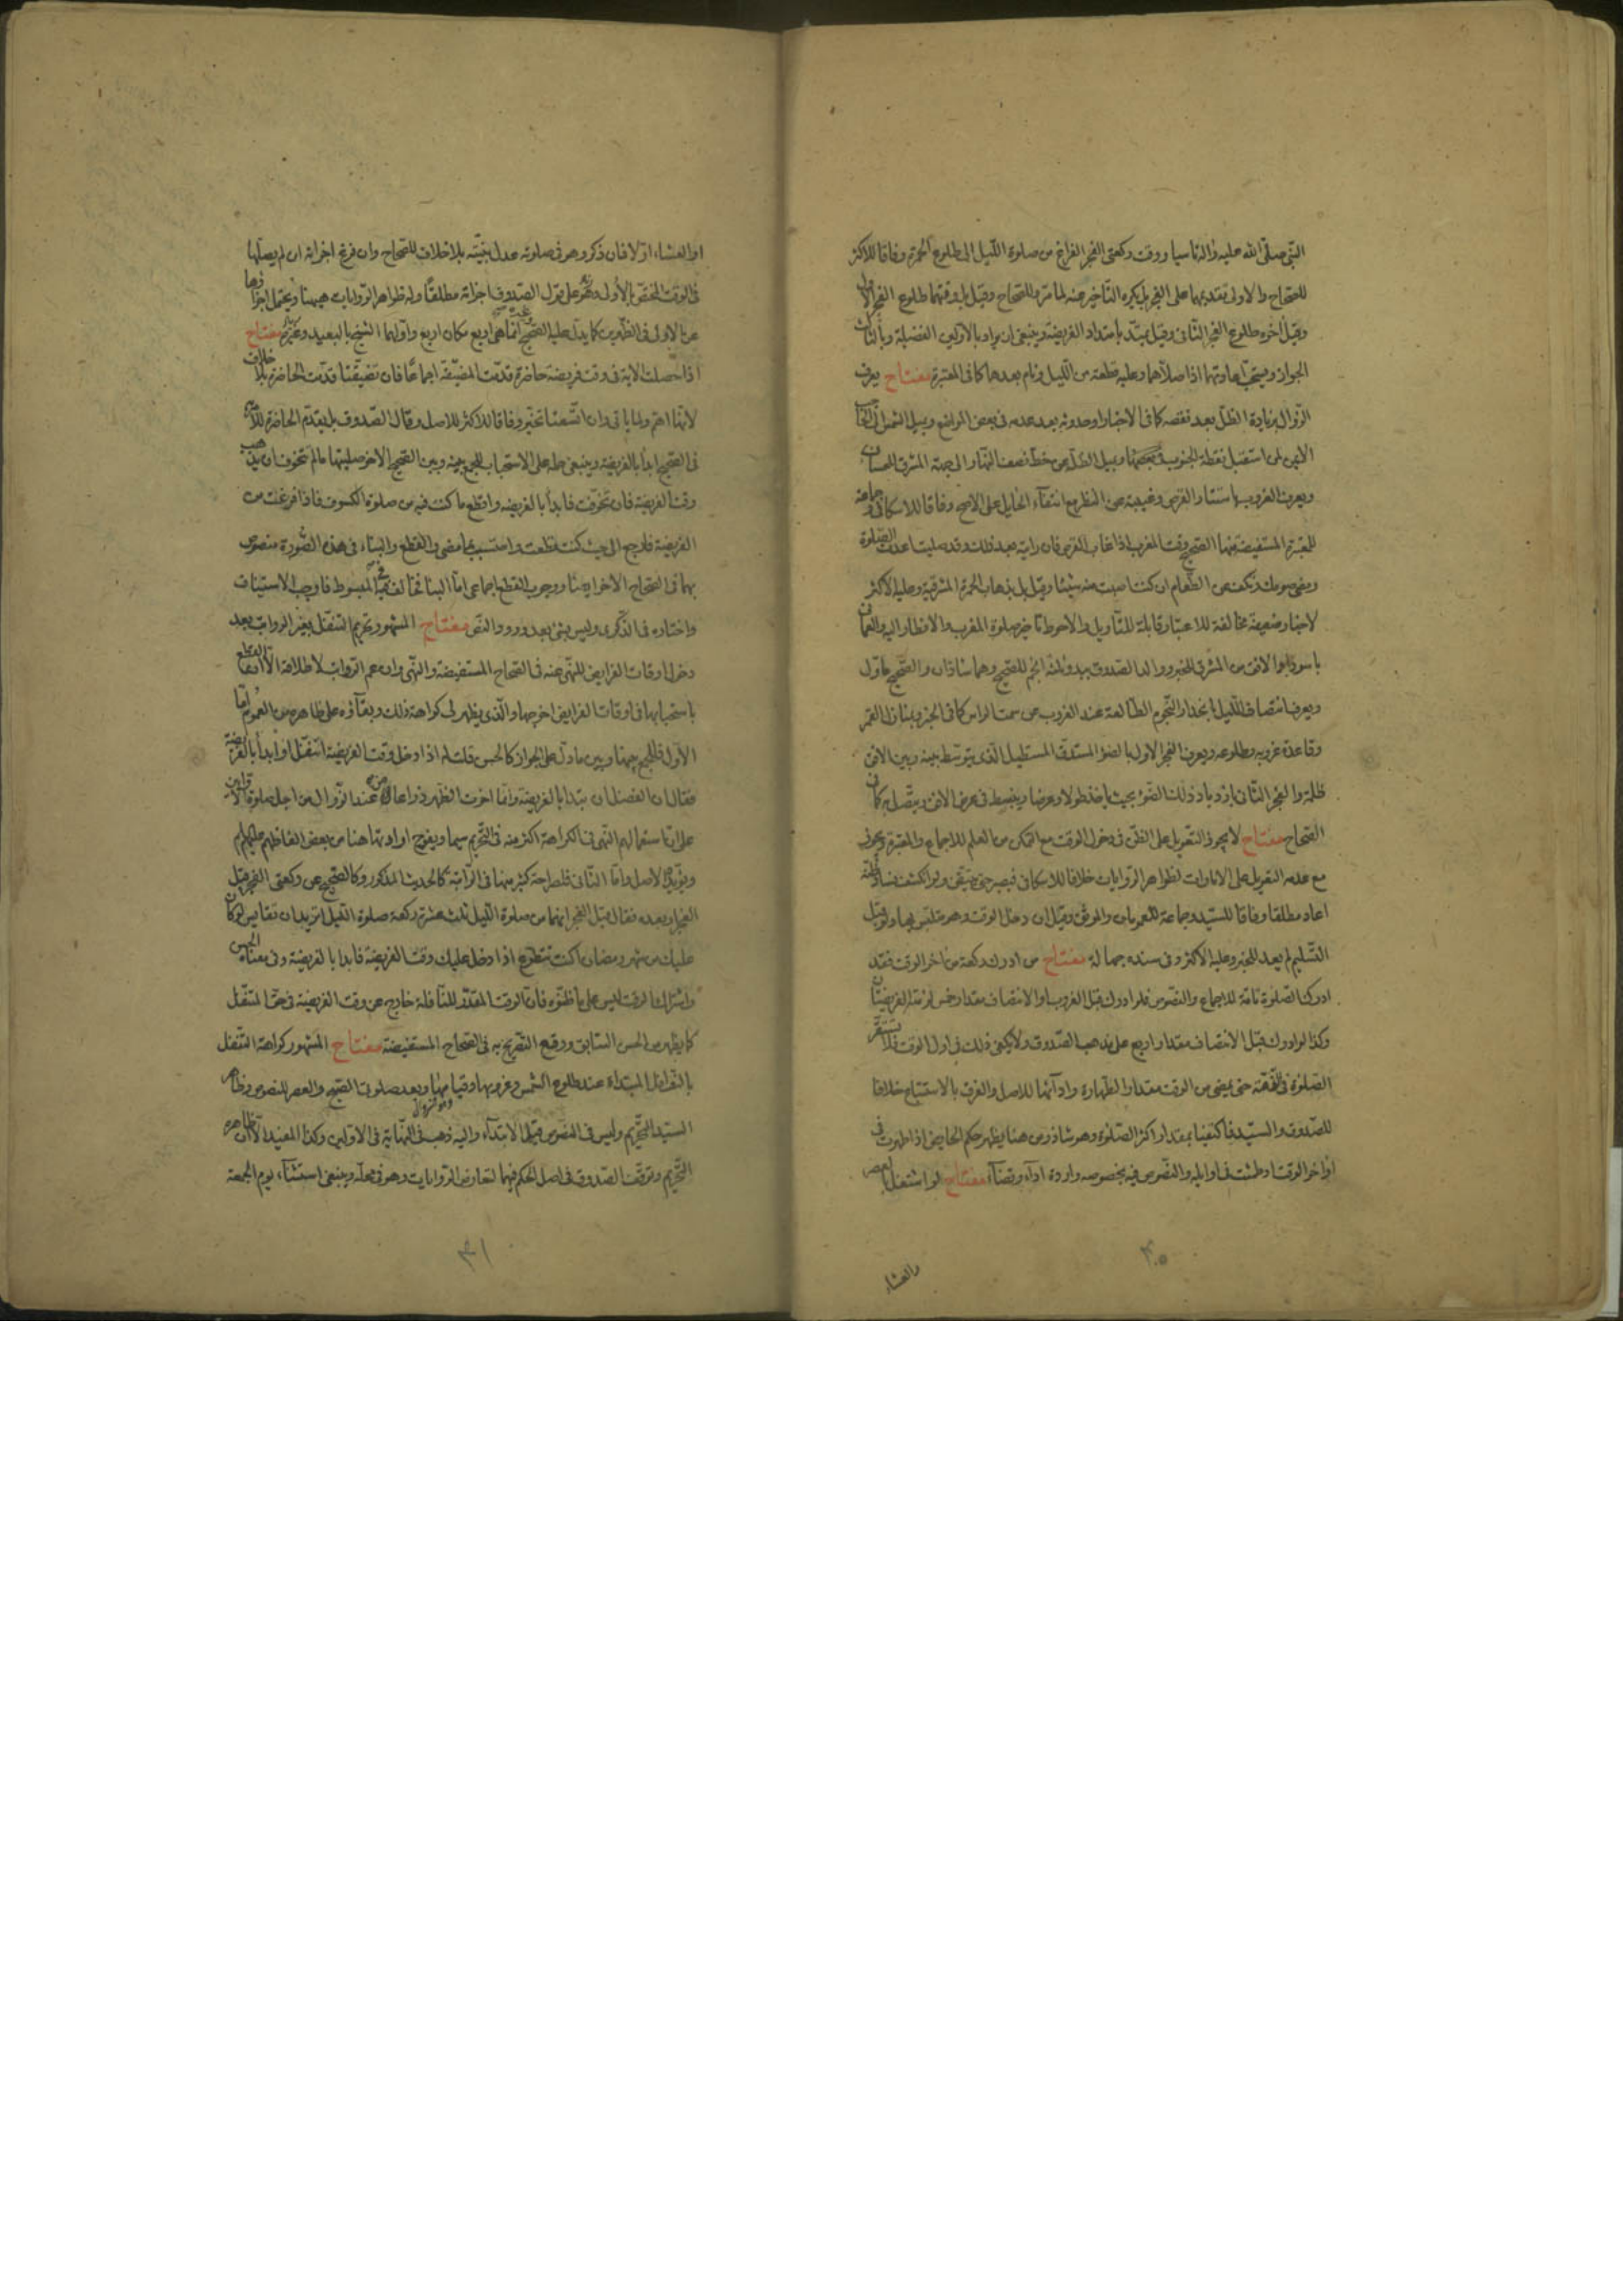 النبي صلى الله عليه واله تاسيا ووقت ركعتي الفجر الفراغ من صلوة الليل الى طلوع الحمرة وفاقا للاكثر
للصحاح والاولى تقديمهما على الفجر بل يكره التاخير عنه لما مر وللصحاح وقيل بل وقتهما طلوع الفجر الاول
وقيل اخره طلوع الفجر الثاني وقيل يمتد بامتداد الفريضة وينبغي ان يراد بالاولين الفضيلة وبالثالث
الجواز ويستحب اعادتهما اذا صلاهما وعليه قطعة من الليل ونام بعدهما كما في المعتبرة مفتاح يعرف
الزوال بزيادة الظل بعد نقصه كما في الاخبار او حدوثه بعد عدمه في بعض المواضع وبميل الشمس الى الحاجب
الايمن لمن استقبل نقطة الجنوب وبميل الظل عن خط نصف النهار الى جهة المشرق
ويعرف الغروب باستتار القرص وغيبته عن النظر مع انتفاء الحايل على الاصح وفاقا للاسكافي وجماعة
للمعتبرة المستفيضة منها الصحيح وقت المغرب اذا غاب القرص فان رايته بعد ذلك وقد صليت اعدت الصلوة
ومضى صومك وتكف عن الطعام ان كنت اصبت منه شيئا وقيل بل بذهاب الحمرة المشرقية وعليه الاكثر
لاخبار ضعيفة مخالفة للاعتبار قابلة للتاويل والاحوط تاخير صلوة المغرب والافطار اليه والعماني
باسوداد الافق من المشرق للخبر ووالد الصدوق ببدو ثلثة انجم للصحيح وهما شاذان والصحيح ماول
ويعرف انتصاف الليل بانحدار النجوم الطالعة عند الغروب عن سمت الراس كما في الخبر وبمنازل القمر
وقاعدة غروبه وطلوعه ويعرف الفجر الاول بالضوء المستدق المستطيل الذي يتوسط بينه وبين الافق
ظلمة والفجر الثاني بازدياد ذلك الضوء بحيث ياخذ طولا وعرضا وينبسط في عرض الافق ويتصل به كما في
الصحاح مفتاح لا يجوز التعويل على الظن في دخول الوقت مع التمكن من العلم للاجماع والمعتبرة ويجوز
مع عدمه التعويل على الامارات لظواهر الروايات خلافا للاسكافي فيصبر حتى يتيقن ولو انكشف فساد ظنه
اعاد مطلقا وفاقا للسيد وجماعة للعمومات والموثق وقيل ان دخل الوقت وهو متلبس بها ولو قبل
التسليم لم يعد للخبر وعليه الاكثر وفي سنده جهالة مفتاح من ادرك ركعة من اخر الوقت فقد
ادرك الصلوة تامة للاجماع والنصوص فلو ادرك قبل الغروب او الانتصاف مقدار خمس لزمته الفريضتان
وكذا لو ادرك قبل الانتصاف مقدار اربع على مذهب الصدوق ولا يكفي ذلك في اول الوقت فلا تستقر
الصلوة في الذمة حتى يمضي من الوقت مقدار الطهارة وادائها للاصل والفرق بالاستتباع خلافا
للصدوق والسيد فاكتفيا بمقدار اكثر الصلوة وهو شاذ ومن هنا يظهر حكم الحايض اذا طهرت في
اواخر الوقت او طمثت في اوايله والنصوص فيه بخصوصه واردة اداء وقضاء مفتاح لو اشتغل بالعصر
والعشاء
٤٠
او العشاء اولا فان ذكر وهو في صلوته عدل بنيته بلا خلاف للصحاح وان فرغ اجزاته ان لم يصلها
في الوقت المختص بالاولى وعلى قول الصدوق اجزاته مطلقا وله ظواهر الروايات ههنا ويحتمل اجزاؤها
عن الاولى في الظهرين كما يدل عليه الصحيح انما هي اربع مكان اربع واولها الشيخ بالبعيد وغيره مفتاح
اذا حصلت الاية في وقت فريضة حاضرة قدمت المضيقة اجماعا فان تضيقتا قدمت الحاضرة بلا خلاف
لانها اهم ولما ياتي وان اتسعتا تخير وفاقا للاكثر للاصل وقال الصدوق بل يقدم الحاضرة للامر
في الصحيح ابدا بالفريضة وينبغي حمله على الاستحباب للجمع بينه وبين الصحيح الاخر صليتها ما لم تتخوف ان يذهب
وقت الفريضة فان تخوفت فابدا بالفريضة واقطع ما كنت فيه من صلوة الكسوف فاذا فرغت من
الفريضة فارجع الى حيث كنت قطعت واحتسب بما مضى والقطع والبناء في هذه الصورة منصوص
بهما في الصحاح الاخر ايضا ووجوب القطع اجماعي اما البناء فخالف فيه المبسوط فاوجب الاستيناف
واختاره في الذكرى وليس بشيء بعد ورود النص مفتاح المشهور تحريم التنفل بغير الرواتب بعد
دخول اوقات الفرايض للنهي عنه في الصحاح المستفيضة والنهي وان عم الرواتب لاطلاقه الا ان القطع
باستحبابها في اوقات الفرايض اخرجها والذي يظهر لي كراهة ذلك وبقاؤه على ظاهره من العموم اما
الاول فللجمع بينها وبين ما دل على الجواز كالحسن قلت له اذا دخل وقت الفريضة اتنفل او ابدا بالفريضة
فقال ان الفضل ان تبدا بالفريضة وانما اخرت الظهر ذراعا من عند الزوال من اجل صلوة الاوابين
على ان استعمالهم النهي في الكراهة اكثر منه في التحريم سيما ويفوح ارادتها هنا من بعض الفاظهم عليهم السلم
ويؤيده الاصل واما الثاني فلصراحة كثير منها في الراتبة كالحديث المذكور وكالصحيح عن ركعتي الفجر قبل
الفجر او بعده فقال قبل الفجر انهما من صلوة الليل ثلث عشرة ركعة صلوة الليل اتريد ان تقايس لو كان
عليك من شهر رمضان اكنت تتطوع اذا دخل عليك وقت الفريضة فابدا بالفريضة وفي معناه الحسن
واشتراك الوقت ليس على ما ظنوه فان الوقت المقدر للنافلة خارج عن وقت الفريضة في حق المتنفل
كما يظهر من الحسن السابق ووقع التصريح به في الصحاح المستفيضة مفتاح المشهور كراهة التنفل
بالنوافل المبتداة عند طلوع الشمس وغروبها وقيامها وبعد صلوتي الصبح والعصر للنصوص وظاهر
السيد التحريم وليس في النصوص قيد الابتداء واليه ذهب في النهاية في الاولين وكذا المفيد الا ان ظاهره
التحريم وتوقف الصدوق في اصل الحكم فيهما لتعارض الروايات وهو في محله وينبغي استثناء يوم الجمعة
٤١